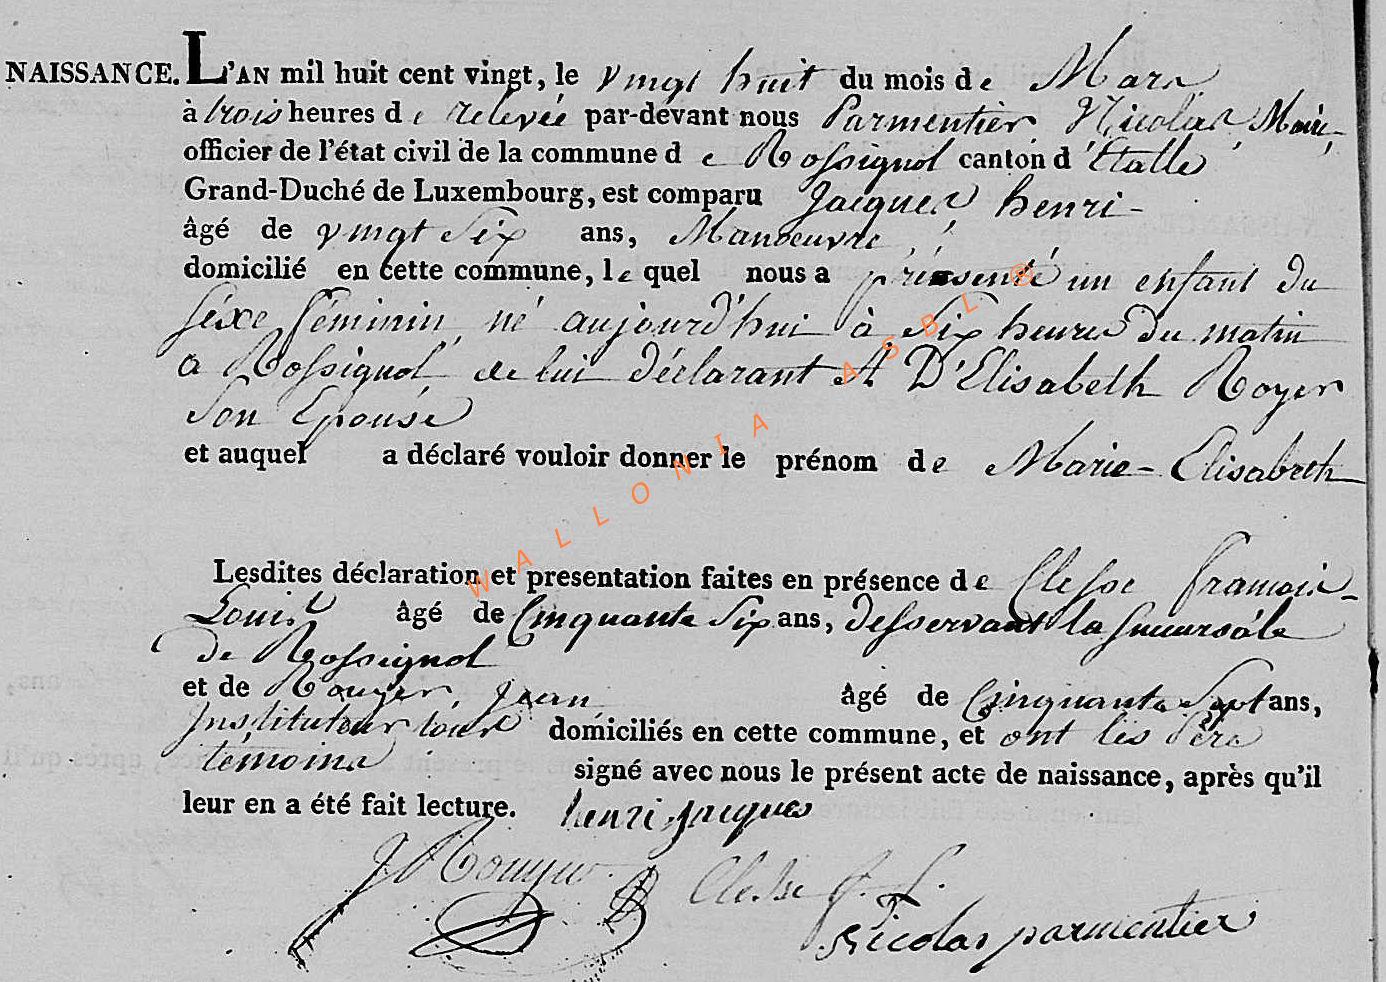 NAISSANCE. L'AN mil huit cent vingt, le vingt huit du mois de Mars
à trois heures de relevée par-devant nous Parmentier Nicolas, Maire,
officier de l'état civil de la commune de Rossignol canton d'Etalle
Grand-Duché de Luxembourg, est comparu Jacques henri
âgé de vingt Six ans, Manoeuvre,
domicilié en cette commune, lequel nous a présenté un enfant du
sexe féminin, né aujourd'hui à Six heures du matin
a Rossignol, de lui Déclarant Et D'Elisabeth Royer
Son Epouse
et auquel a déclaré vouloir donner le prénom de Marie-Elisabeth
Lesdites déclaration et presentation faites en présence de Clesse francois
Louis âgé de Cinquante Six ans, desservant la succursale
de Rossignol
et de Rouyer, Jean, âgé de Cinquante Sept ans,
Instituteur tous domiciliés en cette commune, et ont les Père
témoins signé avec nous le présent acte de naissance, après qu'il
leur en a été fait lecture. henri jacques
J Rouyer Clesse f. L.
Nicolas parmentier
WALLONIA ASBL ®